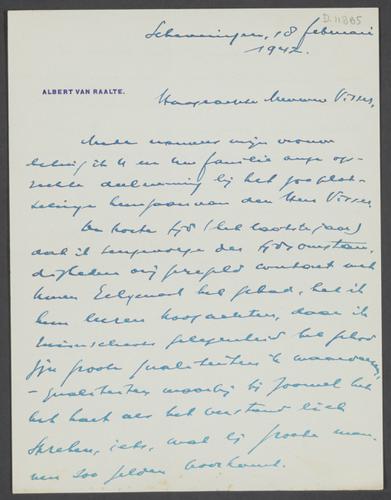 D.11885
Scheveningen, 18 februari
1942.
ALBERT VAN RAALTE.
Hooggeachte Mevrouw Visser,
Mede namens mijn vrouw
betuig ik U en Uw familie onze op-
rechte deelneming bij het zoo plot-
selinge heengaan van den Heer Visser.
De korte tijd (het laatste jaar)
dat ik tengevolge der tijdsomstan-
digheden vrij geregeld contact met
Uwen Echtgenoot heb gehad, heb ik
hem leeren hoogachten, daar ik
ruimschoots gelegenheid heb gehad
zijn groote qualiteiten te waardeeren,
- qualiteiten waarbij bij zoowel het
het hart als het verstand liet
spreken, iets, wat bij groote man-
nen zoo zelden voorkomt.